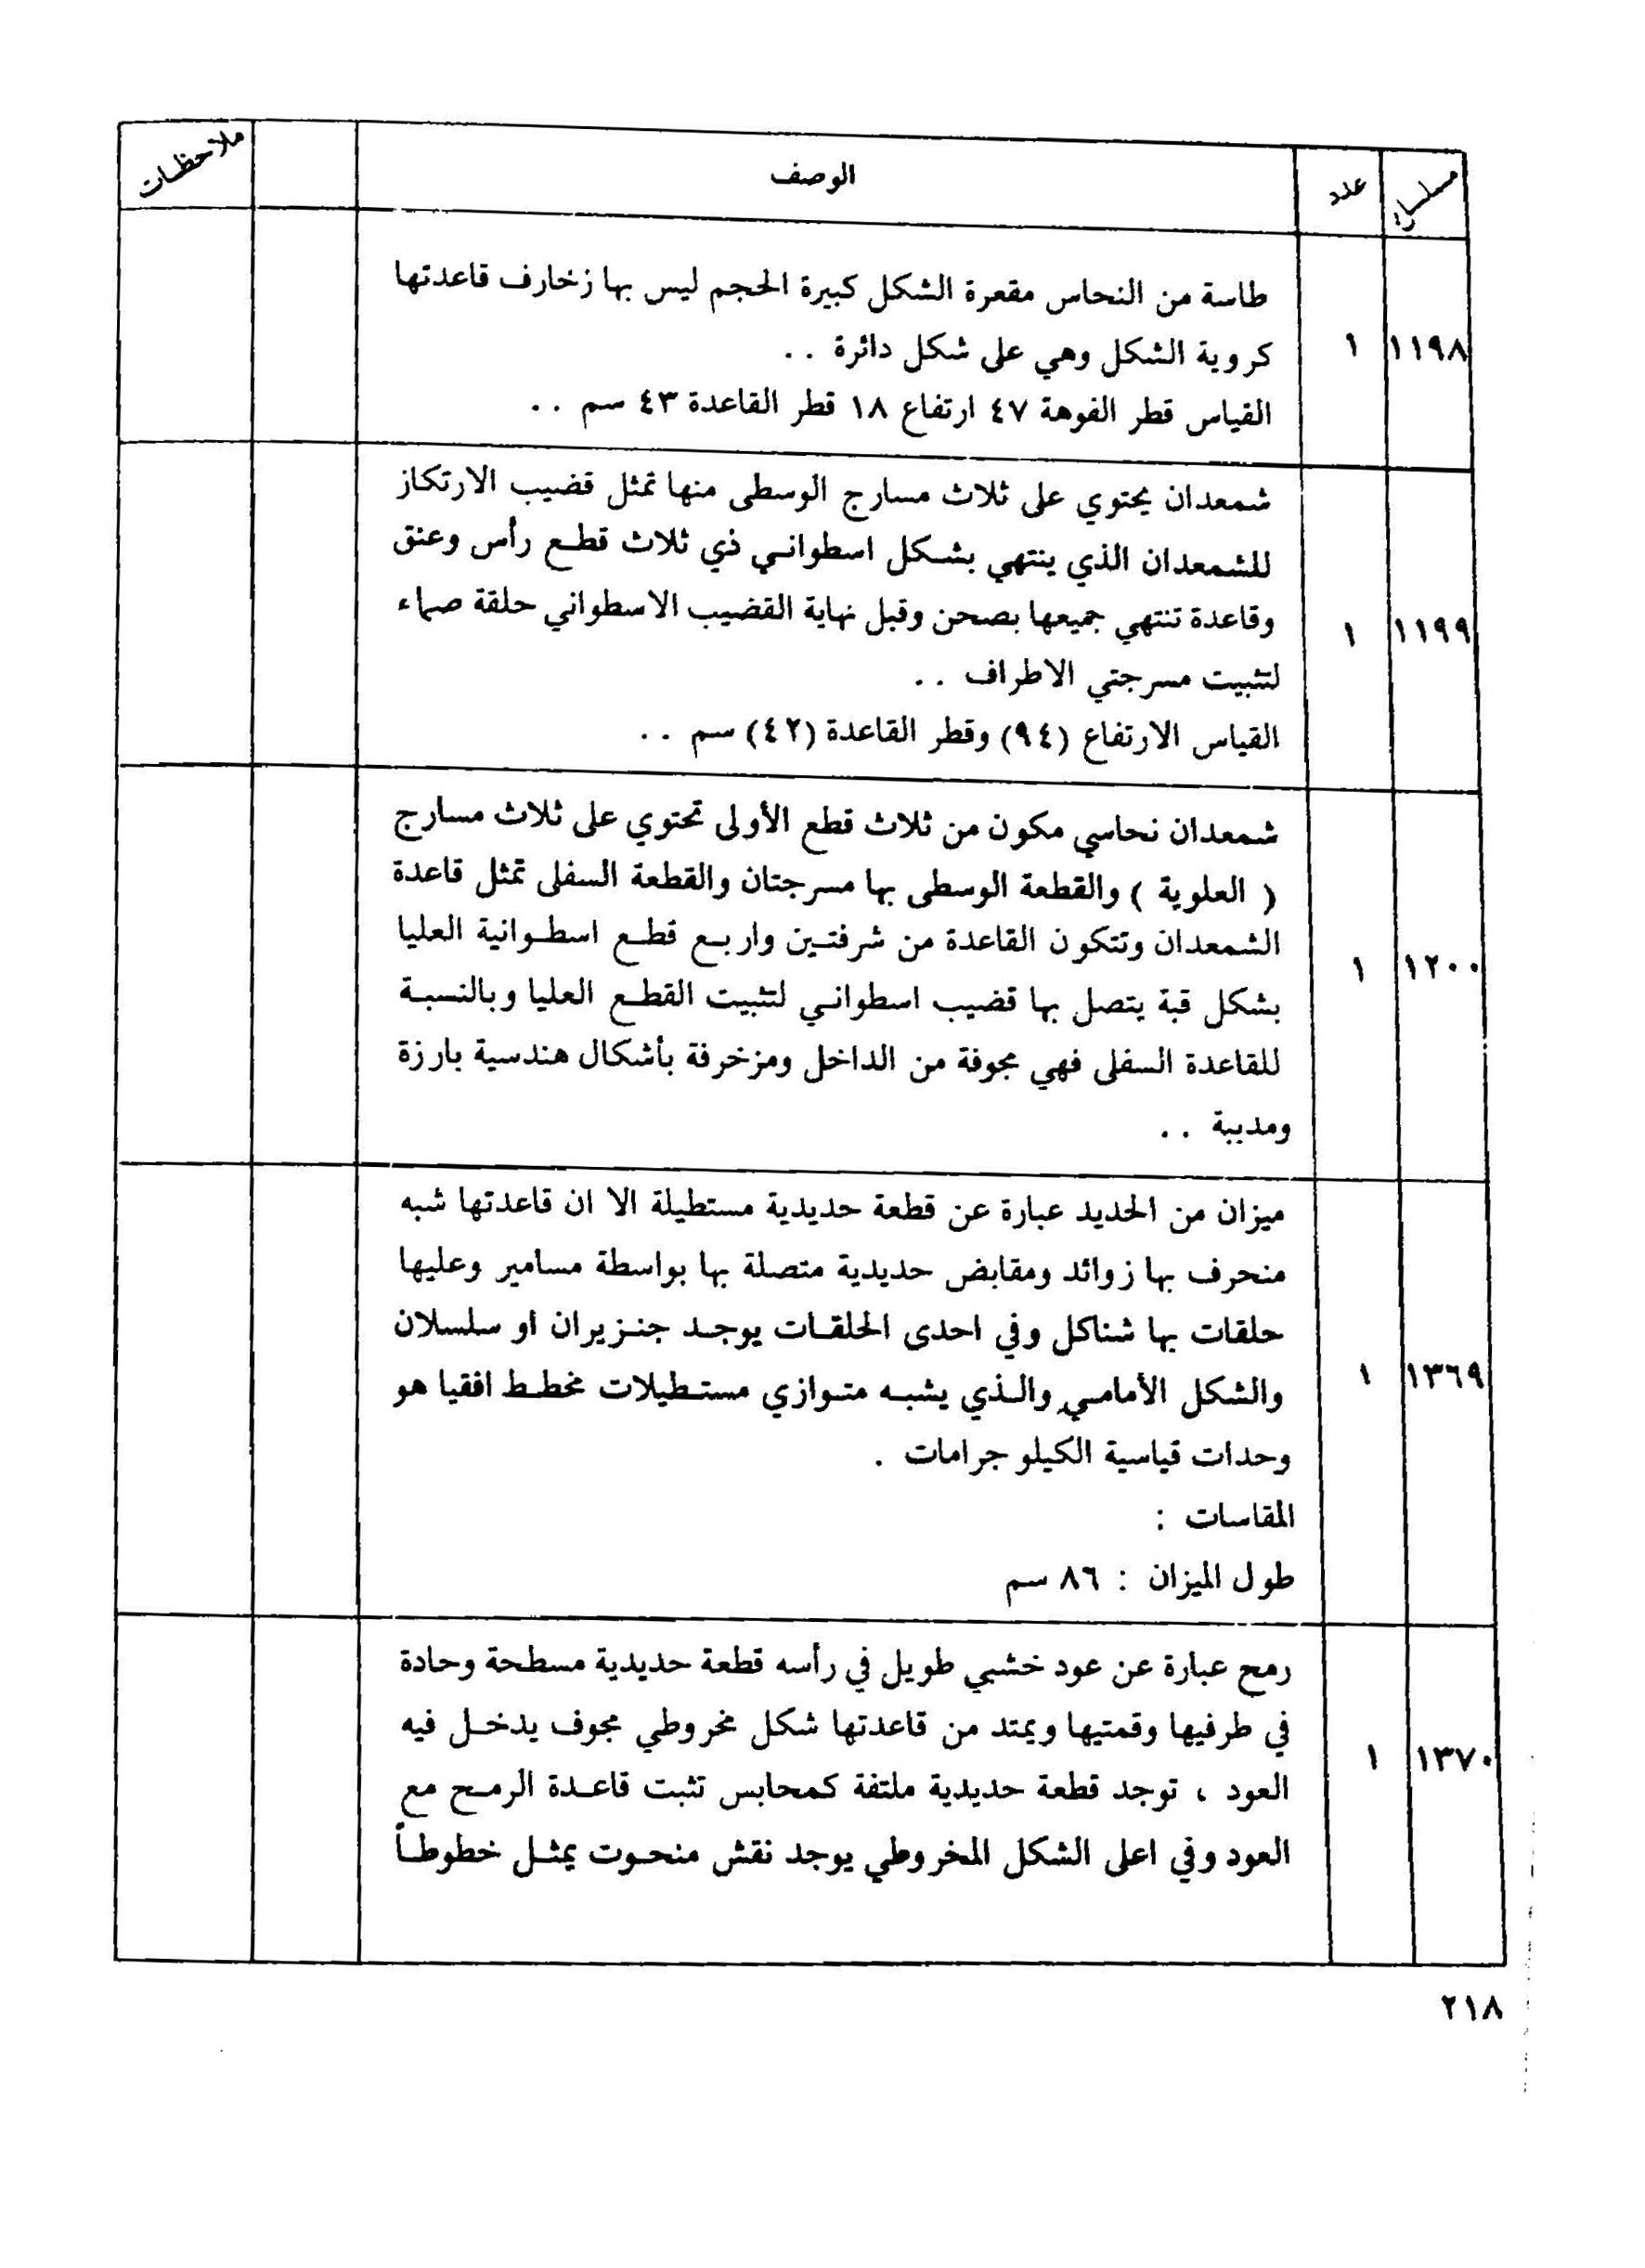 مسلسل عدد الوصف ملاحظات
طاسة من النحاس مقعرة الشكل كبيرة الحجم ليس بها زخارف قاعدتها
١١٩٨ ١ كروية الشكل وهي على شكل دائرة . .
القياس قطر الفوهة ٤٧ ارتفاع ١٨ قطر القاعدة ٤٣ سم . .
شمعدان يحتوي على ثلاث مسارج الوسطى منها تمثل قضيب الارتكاز
للشمعدان الذي ينتهي بشكل اسطواني ذي ثلاث قطع رأس وعنق
١١٩٩ ١ وقاعدة تنتهي جميعها بصحن وقبل نهاية القضيب الاسطواني حلقة صماء
لتثبيت مسرجتي الاطراف . .
القياس الارتفاع (٩٤) وقطر القاعدة (٤٢) سم . .
شمعدان نحاسي مكون من ثلاث قطع الأولى تحتوي على ثلاث مسارج
( العلوية ) والقطعة الوسطى بها مسرجتان والقطعة السفلى تمثل قاعدة
١٢٠٠ ١ الشمعدان وتتكون القاعدة من شرفتين واربع قطع اسطوانية العليا
بشكل قبة يتصل بها قضيب اسطواني لتثبيت القطع العليا وبالنسبة
للقاعدة السفلى فهي مجوفة من الداخل ومزخرفة بأشكال هندسية بارزة
ومدببة . .
ميزان من الحديد عبارة عن قطعة حديدية مستطيلة الا ان قاعدتها شبه
منحرف بها زوائد ومقابض حديدية متصلة بها بواسطة مسامير وعليها
حلقات بها شناكل وفي احدى الحلقات يوجد جنزيران او سلسلان
١٣٦٩ ١ والشكل الأمامي والذي يشبه متوازي مستطيلات مخطط افقيا هو
وحدات قياسية الكيلو جرامات .
المقاسات :
طول الميزان : ٨٦ سم
رمح عبارة عن عود خشبي طويل في رأسه قطعة حديدية مسطحة وحادة
في طرفيها وقمتيها ويمتد من قاعدتها شكل مخروطي مجوف يدخل فيه
١٣٧٠ ١ العود ، توجد قطعة حديدية ملتفة كمحابس تثبت قاعدة الرمح مع
العود وفي اعلى الشكل المخروطي يوجد نقش منحوت يمثل خطوطاً
٢١٨